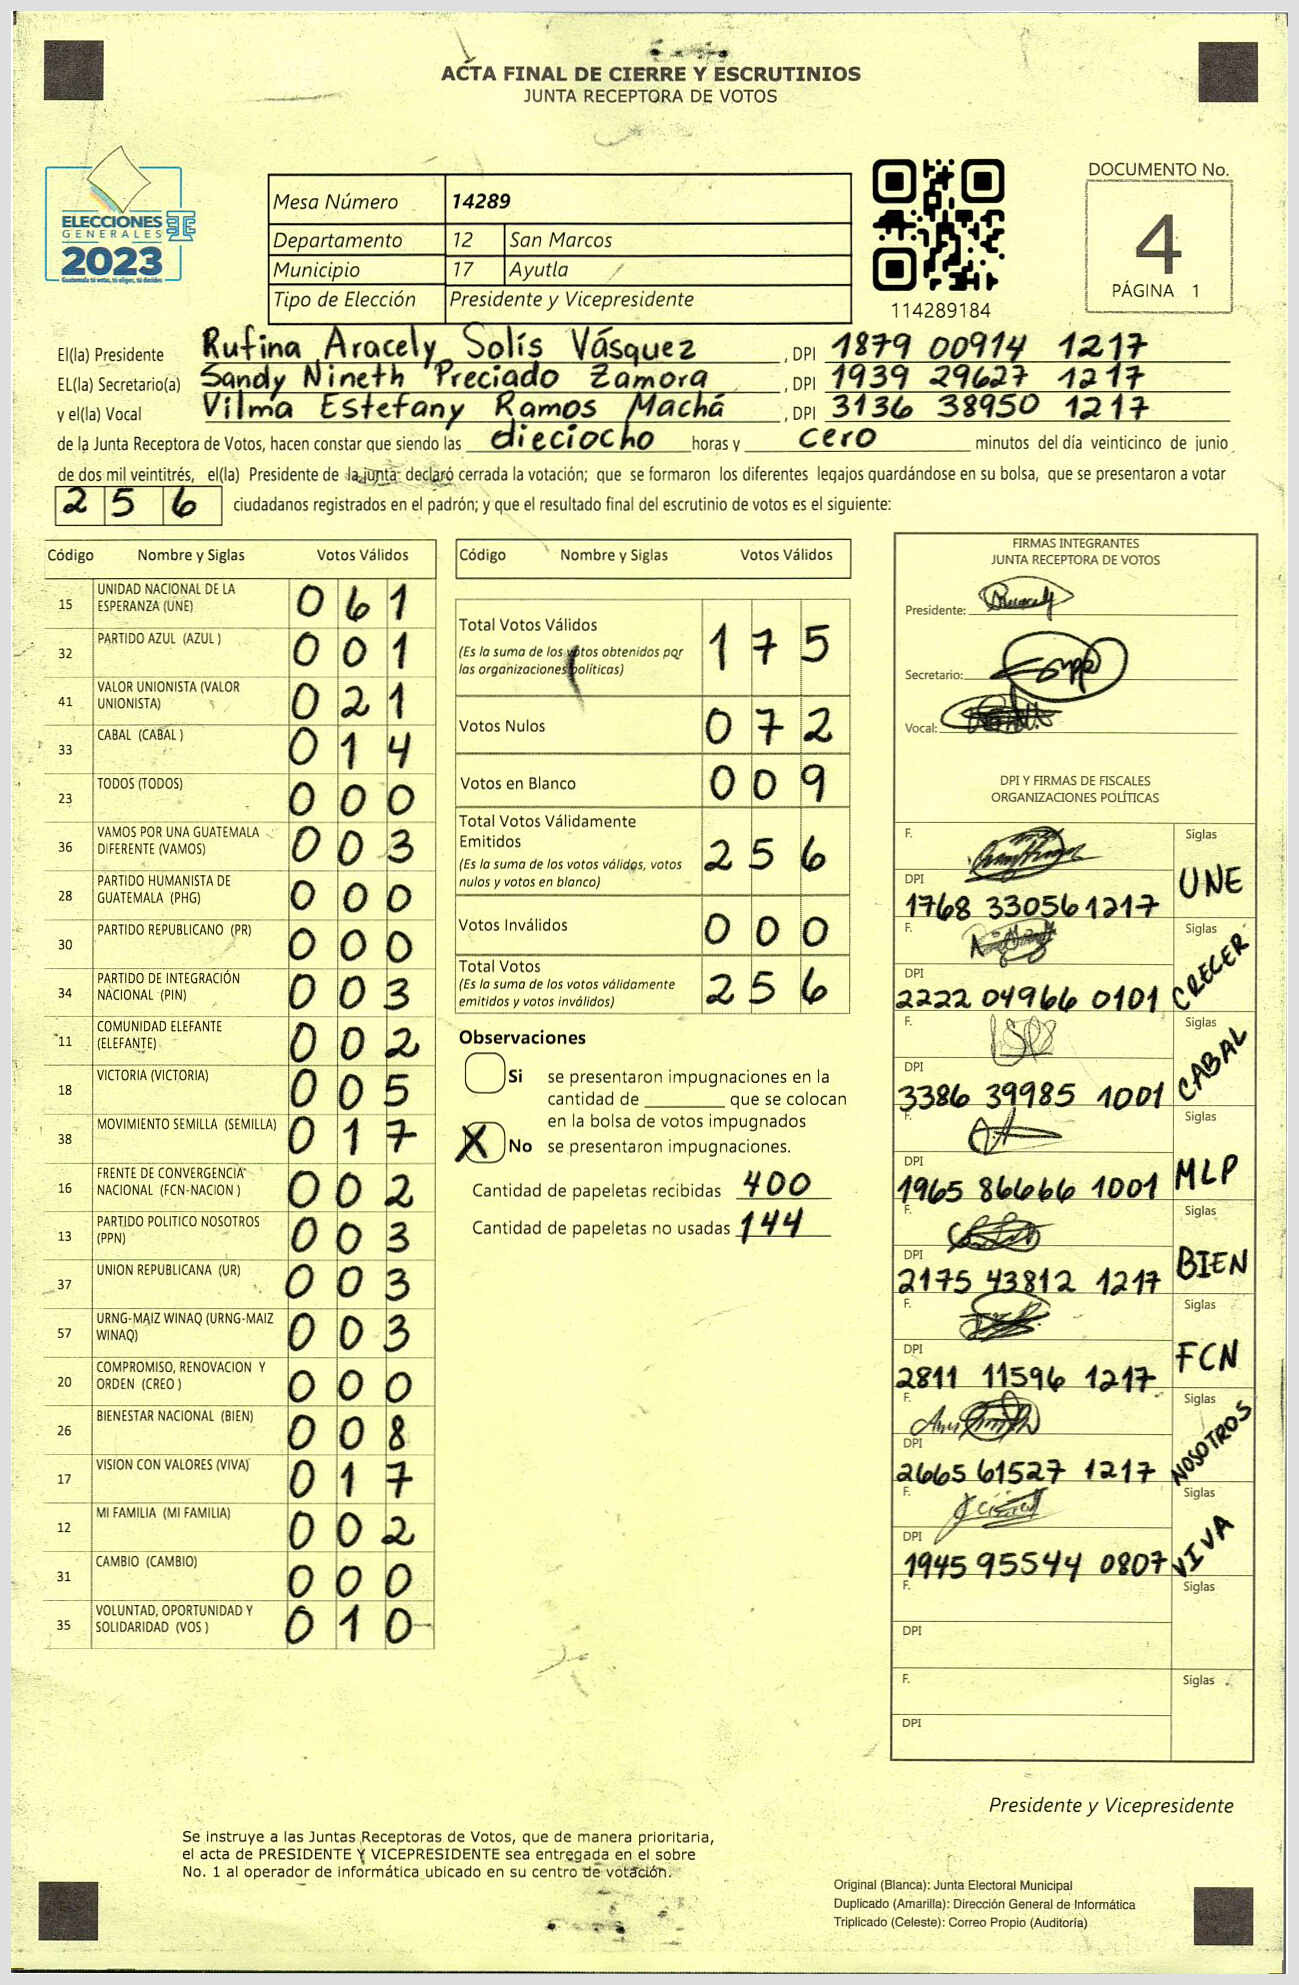 ACTA FINAL DE CIERRE Y ESCRUTINIOS
JUNTA RECEPTORA DE VOTOS
ELECCIONES
GENERALES
2023
Guatemala tú votas, tú eliges, tú decides
Mesa Número 14289
Departamento 12 San Marcos
Municipio 17 Ayutla
Tipo de Elección Presidente y Vicepresidente
114289184
DOCUMENTO No.
4
PÁGINA 1
El(la) Presidente Rufina Aracely Solís Vásquez , DPI 1879 00914 1217
EL(la) Secretario(a) Sandy Nineth Preciado Zamora , DPI 1939 29627 1217
y el(la) Vocal Vilma Estefany Ramos Machá , DPI 3136 38950 1217
de la Junta Receptora de Votos, hacen constar que siendo las dieciocho horas y cero minutos del día veinticinco de junio
de dos mil veintitrés, el(la) Presidente de la junta declaró cerrada la votación; que se formaron los diferentes legajos quardándose en su bolsa, que se presentaron a votar
256 ciudadanos registrados en el padrón; y que el resultado final del escrutinio de votos es el siguiente:
Código Nombre y Siglas Votos Válidos
15 UNIDAD NACIONAL DE LA ESPERANZA (UNE) 061
32 PARTIDO AZUL (AZUL ) 001
41 VALOR UNIONISTA (VALOR UNIONISTA) 021
33 CABAL (CABAL ) 014
23 TODOS (TODOS) 000
36 VAMOS POR UNA GUATEMALA DIFERENTE (VAMOS) 003
28 PARTIDO HUMANISTA DE GUATEMALA (PHG) 000
30 PARTIDO REPUBLICANO (PR) 000
34 PARTIDO DE INTEGRACIÓN NACIONAL (PIN) 003
11 COMUNIDAD ELEFANTE (ELEFANTE) 002
18 VICTORIA (VICTORIA) 005
38 MOVIMIENTO SEMILLA (SEMILLA) 017
16 FRENTE DE CONVERGENCIA NACIONAL (FCN-NACION ) 002
13 PARTIDO POLITICO NOSOTROS (PPN) 003
37 UNION REPUBLICANA (UR) 003
57 URNG-MAIZ WINAQ (URNG-MAIZ WINAQ) 003
20 COMPROMISO, RENOVACION Y ORDEN (CREO ) 000
26 BIENESTAR NACIONAL (BIEN) 008
17 VISION CON VALORES (VIVA) 017
12 MI FAMILIA (MI FAMILIA) 002
31 CAMBIO (CAMBIO) 000
35 VOLUNTAD, OPORTUNIDAD Y SOLIDARIDAD (VOS ) 010
Código Nombre y Siglas Votos Válidos
Total Votos Válidos 175
(Es la suma de los votos obtenidos por
las organizaciones políticas)
Votos Nulos 072
Votos en Blanco 009
Total Votos Válidamente
Emitidos 256
(Es la suma de los votos válidos, votos
nulos y votos en blanco)
Votos Inválidos 000
Total Votos 256
(Es la suma de los votos válidamente
emitidos y votos inválidos)
Observaciones
Si se presentaron impugnaciones en la
cantidad de ________ que se colocan
en la bolsa de votos impugnados
X No se presentaron impugnaciones.
Cantidad de papeletas recibidas 400
Cantidad de papeletas no usadas 144
FIRMAS INTEGRANTES
JUNTA RECEPTORA DE VOTOS
Presidente:
Secretario:
Vocal:
DPI Y FIRMAS DE FISCALES
ORGANIZACIONES POLÍTICAS
F. Siglas
DPI 1768 33056 1217 UNE
F. Siglas
DPI 2222 04966 0101 CRECER
F. Siglas
DPI 3386 39985 1001 CABAL
F. Siglas
DPI 1965 86666 1001 MLP
F. Siglas
DPI 2175 43812 1217 BIEN
F. Siglas
DPI 2811 11596 1217 FCN
F. Siglas
DPI 2665 61527 1217 NOSOTROS
F. Siglas
DPI 1945 95544 0807 VIVA
F. Siglas
DPI
F. Siglas
DPI
Presidente y Vicepresidente
Se instruye a las Juntas Receptoras de Votos, que de manera prioritaria,
el acta de PRESIDENTE Y VICEPRESIDENTE sea entregada en el sobre
No. 1 al operador de informática ubicado en su centro de votación.
Original (Blanca): Junta Electoral Municipal
Duplicado (Amarilla): Dirección General de Informática
Triplicado (Celeste): Correo Propio (Auditoría)